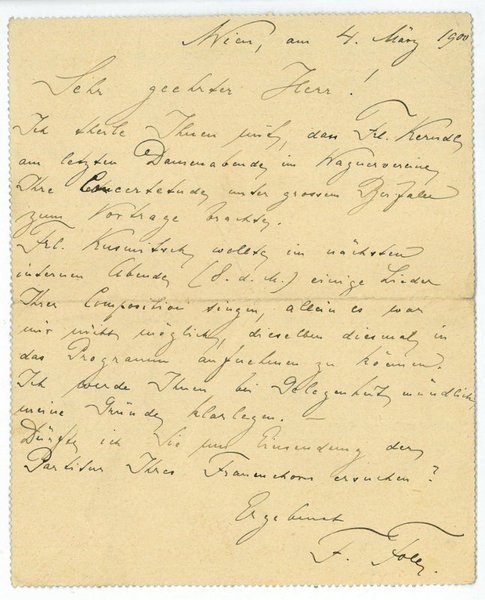 Wien, am 4. März 1900
Sehr geehrter Herr!
Ich theile Ihnen mit, dass Frl. Kerndl
am letzten Damenabende im Wagnervereine
Ihre Concertetude unter grossem Beifalle
zum Vortrage brachte.
Frl. Kusmitsch wollte im nächsten
internen Abende (8. d. M.) einige Lieder
Ihrer Composition singen, allein es war
mir nicht möglich, dieselben diesmal in
das Programm aufnehmen zu können.
Ich werde Ihnen bei Gelegenheit mündlich
meine Gründe klarlegen. —
Dürfte ich Sie um Einsendung der
Partitur Ihres Frauenchors ersuchen?
Ergebenst
F. Foll.